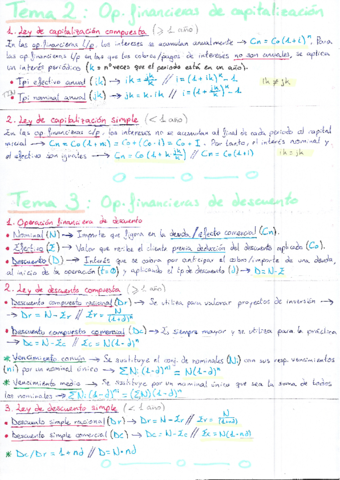 Tema 2: Op. financieras de capitalización
1. Ley de capitalización compuesta (≥ 1 año)
En las op. financieras l/p, los intereses se acumulan anualmente → Cn = Co(1+i)ⁿ. Para
las op. financieras en las que los cobros/pagos de intereses no son anuales, se aplican
un interés periódico (k = nº veces que el periodo está en un año).
• Tpi efectivo anual (ik) → ik = jk/k // i = (1+ik)ᵏ - 1
ik ≠ jk
• Tpi nominal anual (jk) → jk = k·ik // i = (1 + jk/k)ᵏ - 1
2. Ley de capitalización simple (< 1 año)
En las op. financieras c/p, los intereses no se acumulan al final de cada periodo al capital
inicial → Cn = Co(1+ni) = Co + (Co·i) = Co + I. Por tanto, el interés nominal y
el efectivo son iguales → Cn = Co(1+k·jk/k) // Cn = Co(1+i)
ik = jk
Tema 3: Op. financieras de descuento
1. Operación financiera de descuento
• Nominal (N) → Importe que figura en la deuda/efecto comercial (Cn).
• Efectivo (E) → Valor que recibe el cliente previa deducción del descuento aplicada (Co).
• Descuento (D) → Interés que se cobra por anticipar el cobro/importe de una deuda,
al inicio de la operación (t=0) y aplicando el tipo de descuento (d) → D = N - E
2. Ley de descuento compuesta (≥ 1 año)
• Descuento compuesto racional (Dr) → Se utiliza para valorar proyectos de inversión →
→ Dr = N - Er // Er = N/(1+d)ⁿ
• Descuento compuesto comercial (Dc) → Es siempre mayor y se utiliza para la práctica
→ Dc = N - Ec // Ec = N(1-d)ⁿ
* Vencimiento común → Se sustituye el conj. de nominales (Ni) con sus resp. vencimientos
(ni) por un nominal único → ΣNi(1-d)ⁿⁱ = N(1-d)ⁿ
* Vencimiento medio → Se sustituye por un nominal único que sea la suma de todos
los nominales → ΣNi(1-d)ⁿⁱ = (ΣNi)(1-d)ⁿ
3. Ley de descuento simple (< 1 año)
• Descuento simple racional (Dr) → Dr = N - Er // Er = N/(1+nd)
• Descuento simple comercial (Dc) → Dc = N - Ec // Ec = N(1-nd)
* Dc/Dr = 1+nd // D = N·nd